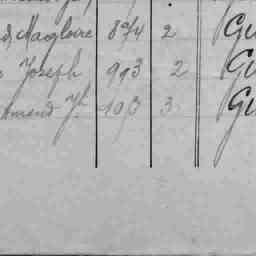 Magloire 874 2 Gu
Joseph 993 2 Gu
mond Jh 103 3 Gu